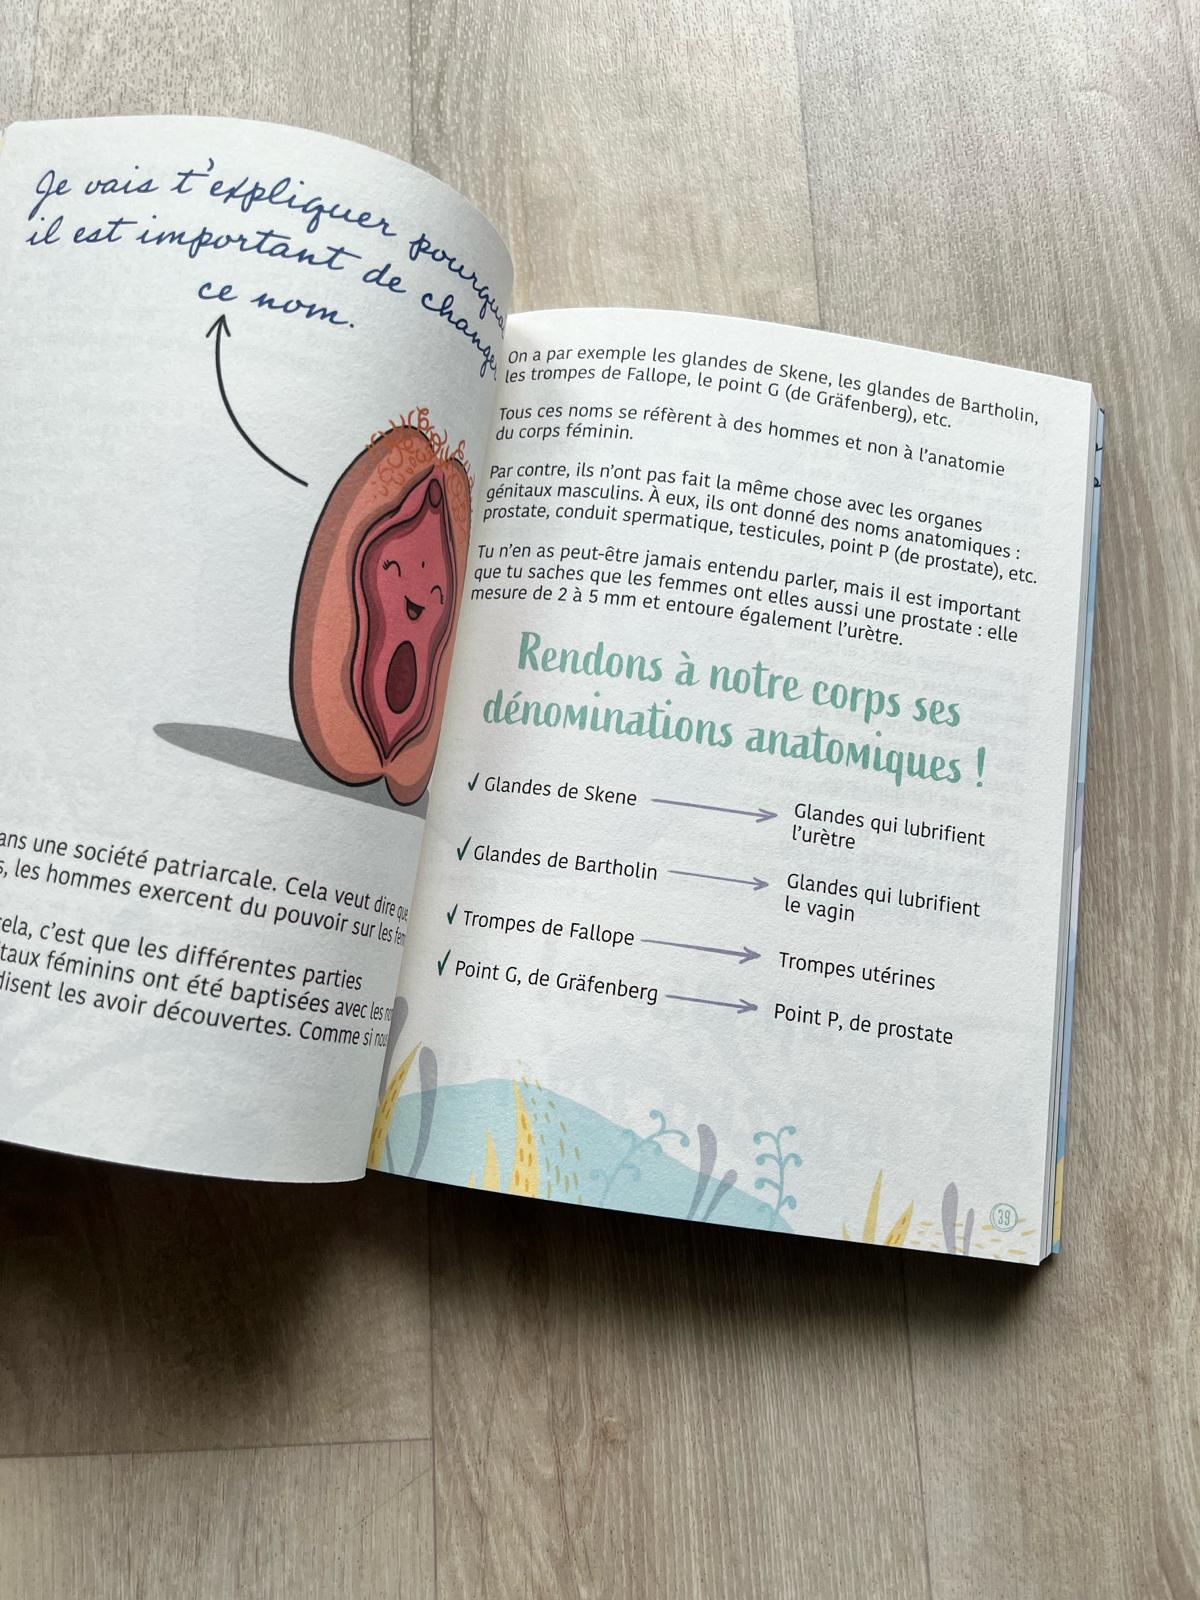 Je vais t'expliquer pourquoi
il est important de changer
ce nom.
ans une société patriarcale. Cela veut dire que
s, les hommes exercent du pouvoir sur les
ela, c'est que les différentes parties
taux féminins ont été baptisées avec les
disent les avoir découvertes. Comme si
On a par exemple les glandes de Skene, les glandes de Bartholin,
les trompes de Fallope, le point G (de Gräfenberg), etc.
Tous ces noms se réfèrent à des hommes et non à l'anatomie
du corps féminin.
Par contre, ils n'ont pas fait la même chose avec les organes
génitaux masculins. À eux, ils ont donné des noms anatomiques :
prostate, conduit spermatique, testicules, point P (de prostate), etc.
Tu n'en as peut-être jamais entendu parler, mais il est important
que tu saches que les femmes ont elles aussi une prostate : elle
mesure de 2 à 5 mm et entoure également l'urètre.
Rendons à notre corps ses
dénominations anatomiques !
✓ Glandes de Skene → Glandes qui lubrifient
l'urètre
✓ Glandes de Bartholin → Glandes qui lubrifient
le vagin
✓ Trompes de Fallope → Trompes utérines
✓ Point G, de Gräfenberg → Point P, de prostate
39